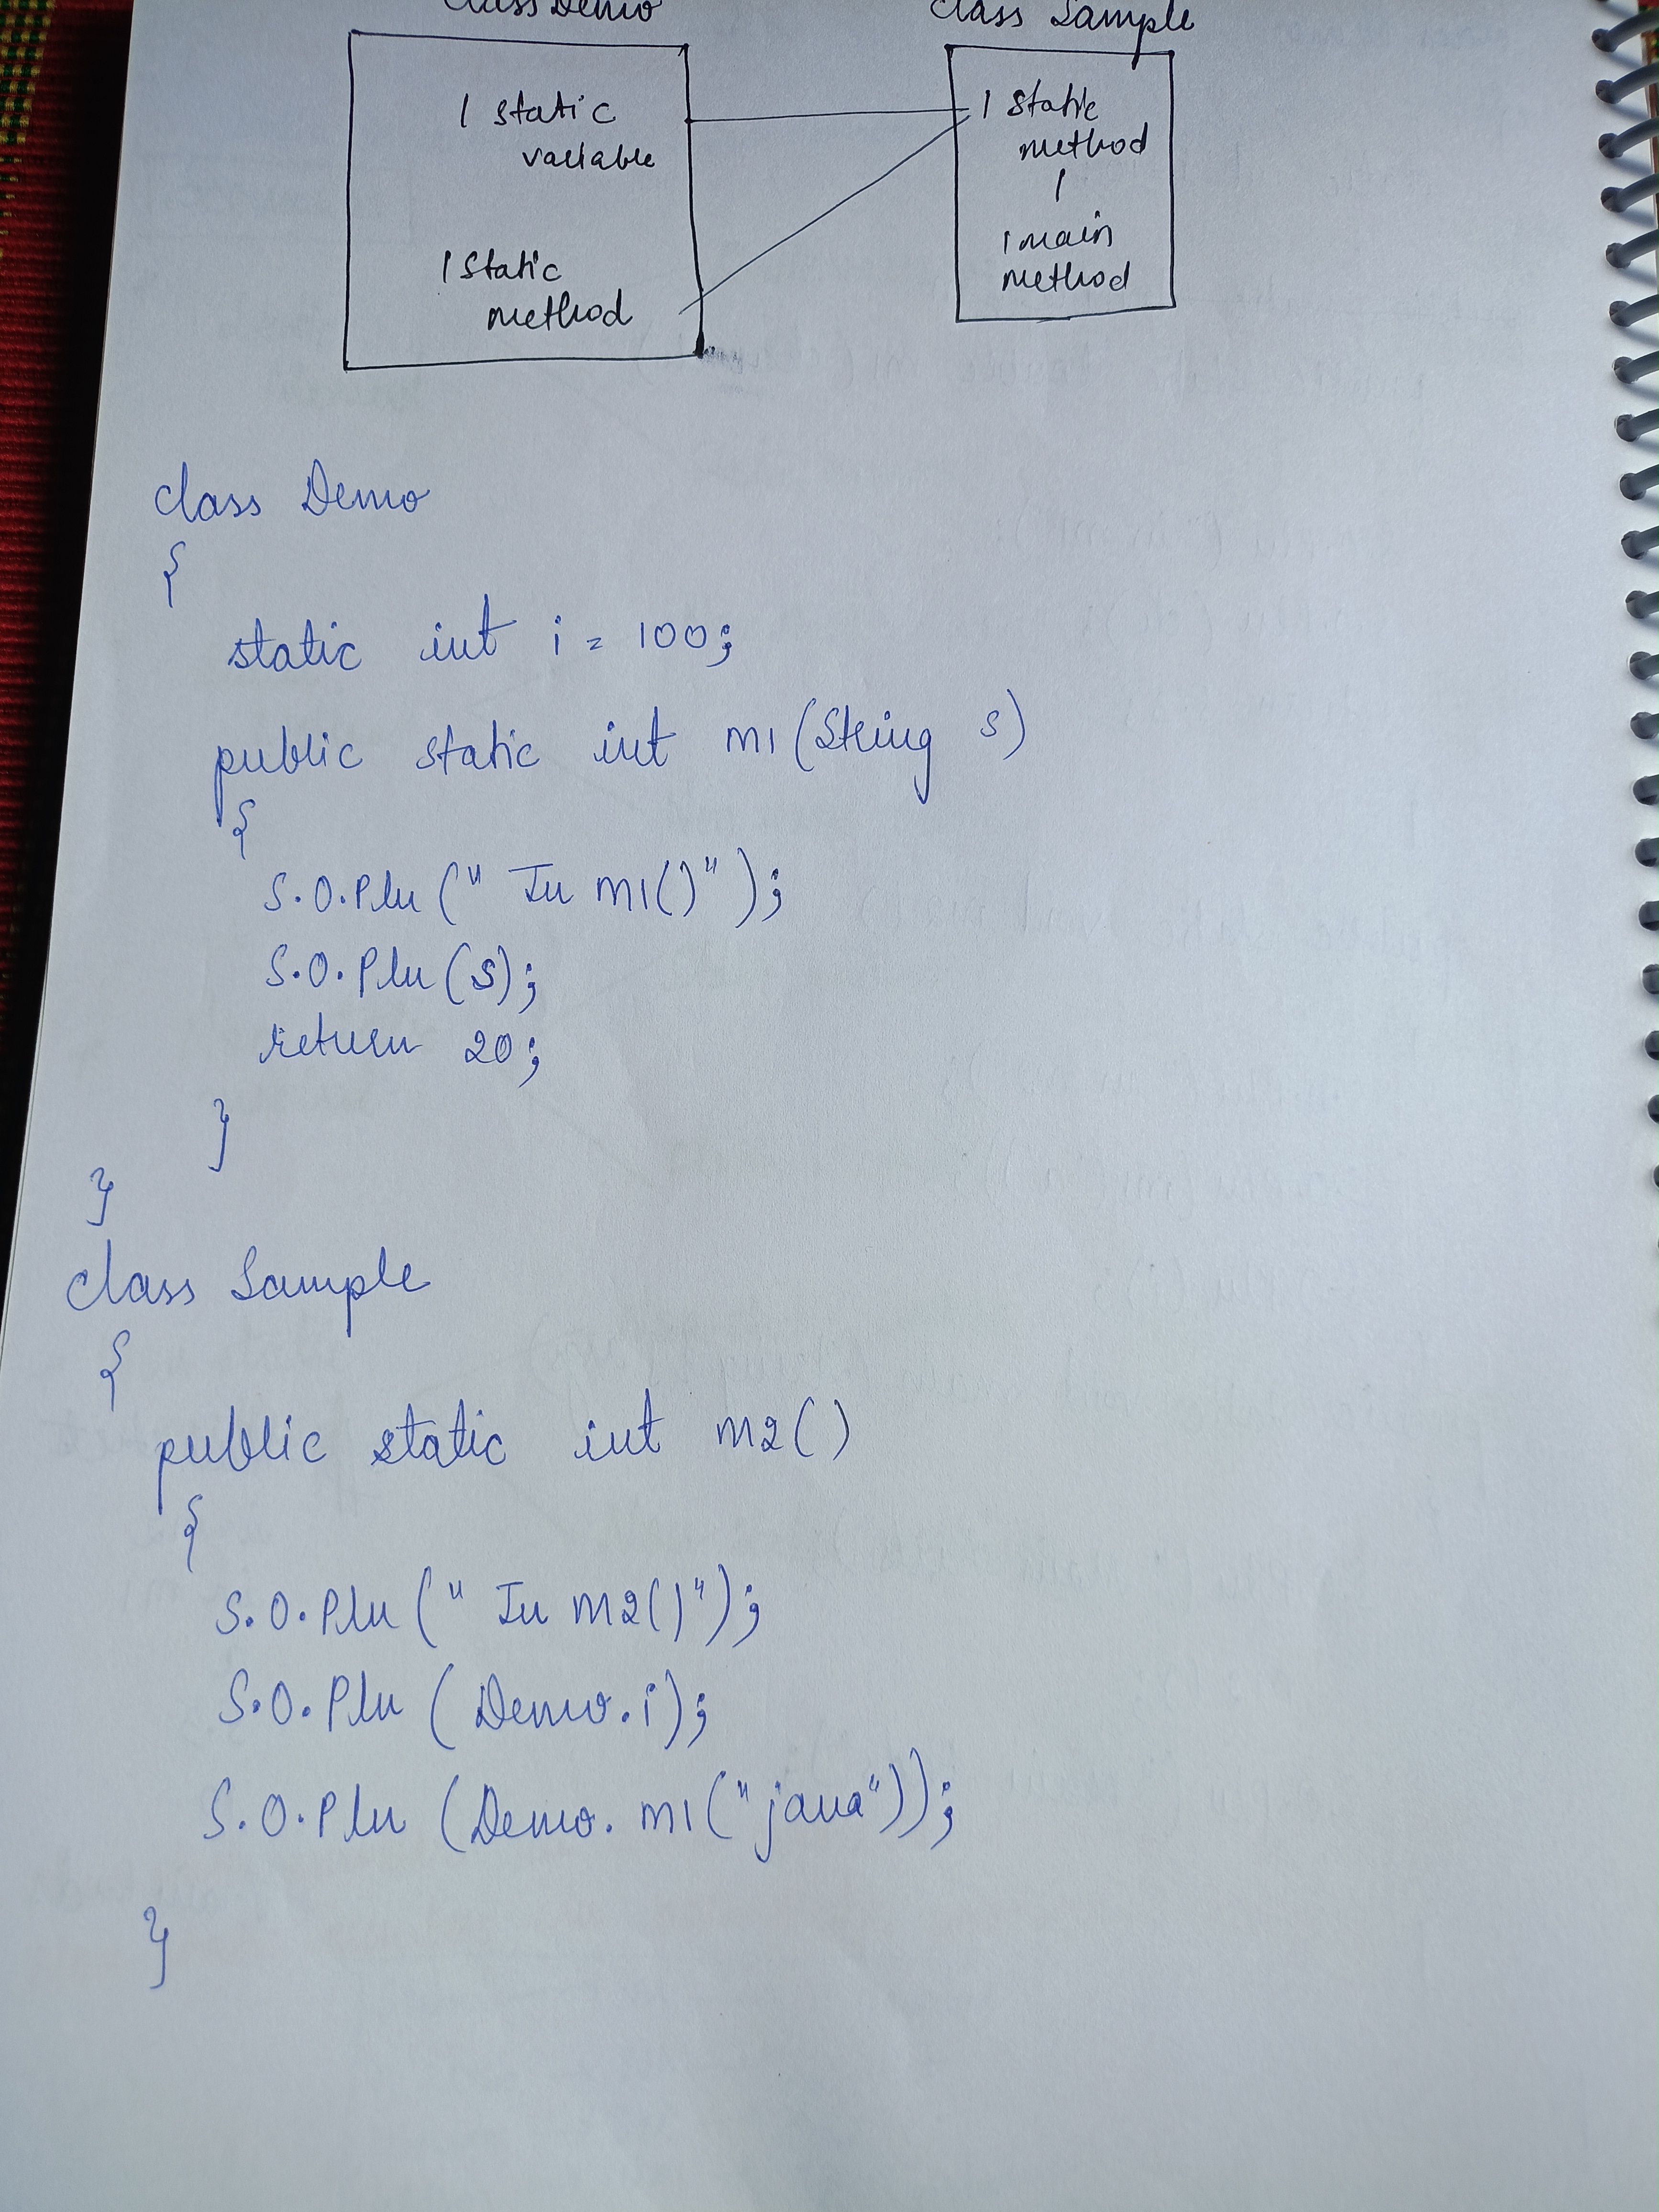 class Demo
class Sample
1 static
variable
1 static
method
1 static
method
1
1 main
method
class Demo
{
static int i = 100;
public static int m1(String s)
{
S.O.Pln(" In m1()");
S.O.Pln(s);
return 20;
}
}
class Sample
{
public static int m2()
{
S.O.Pln(" In m2()");
S.O.Pln (Demo.i);
S.O.Pln (Demo. m1("java"));
}